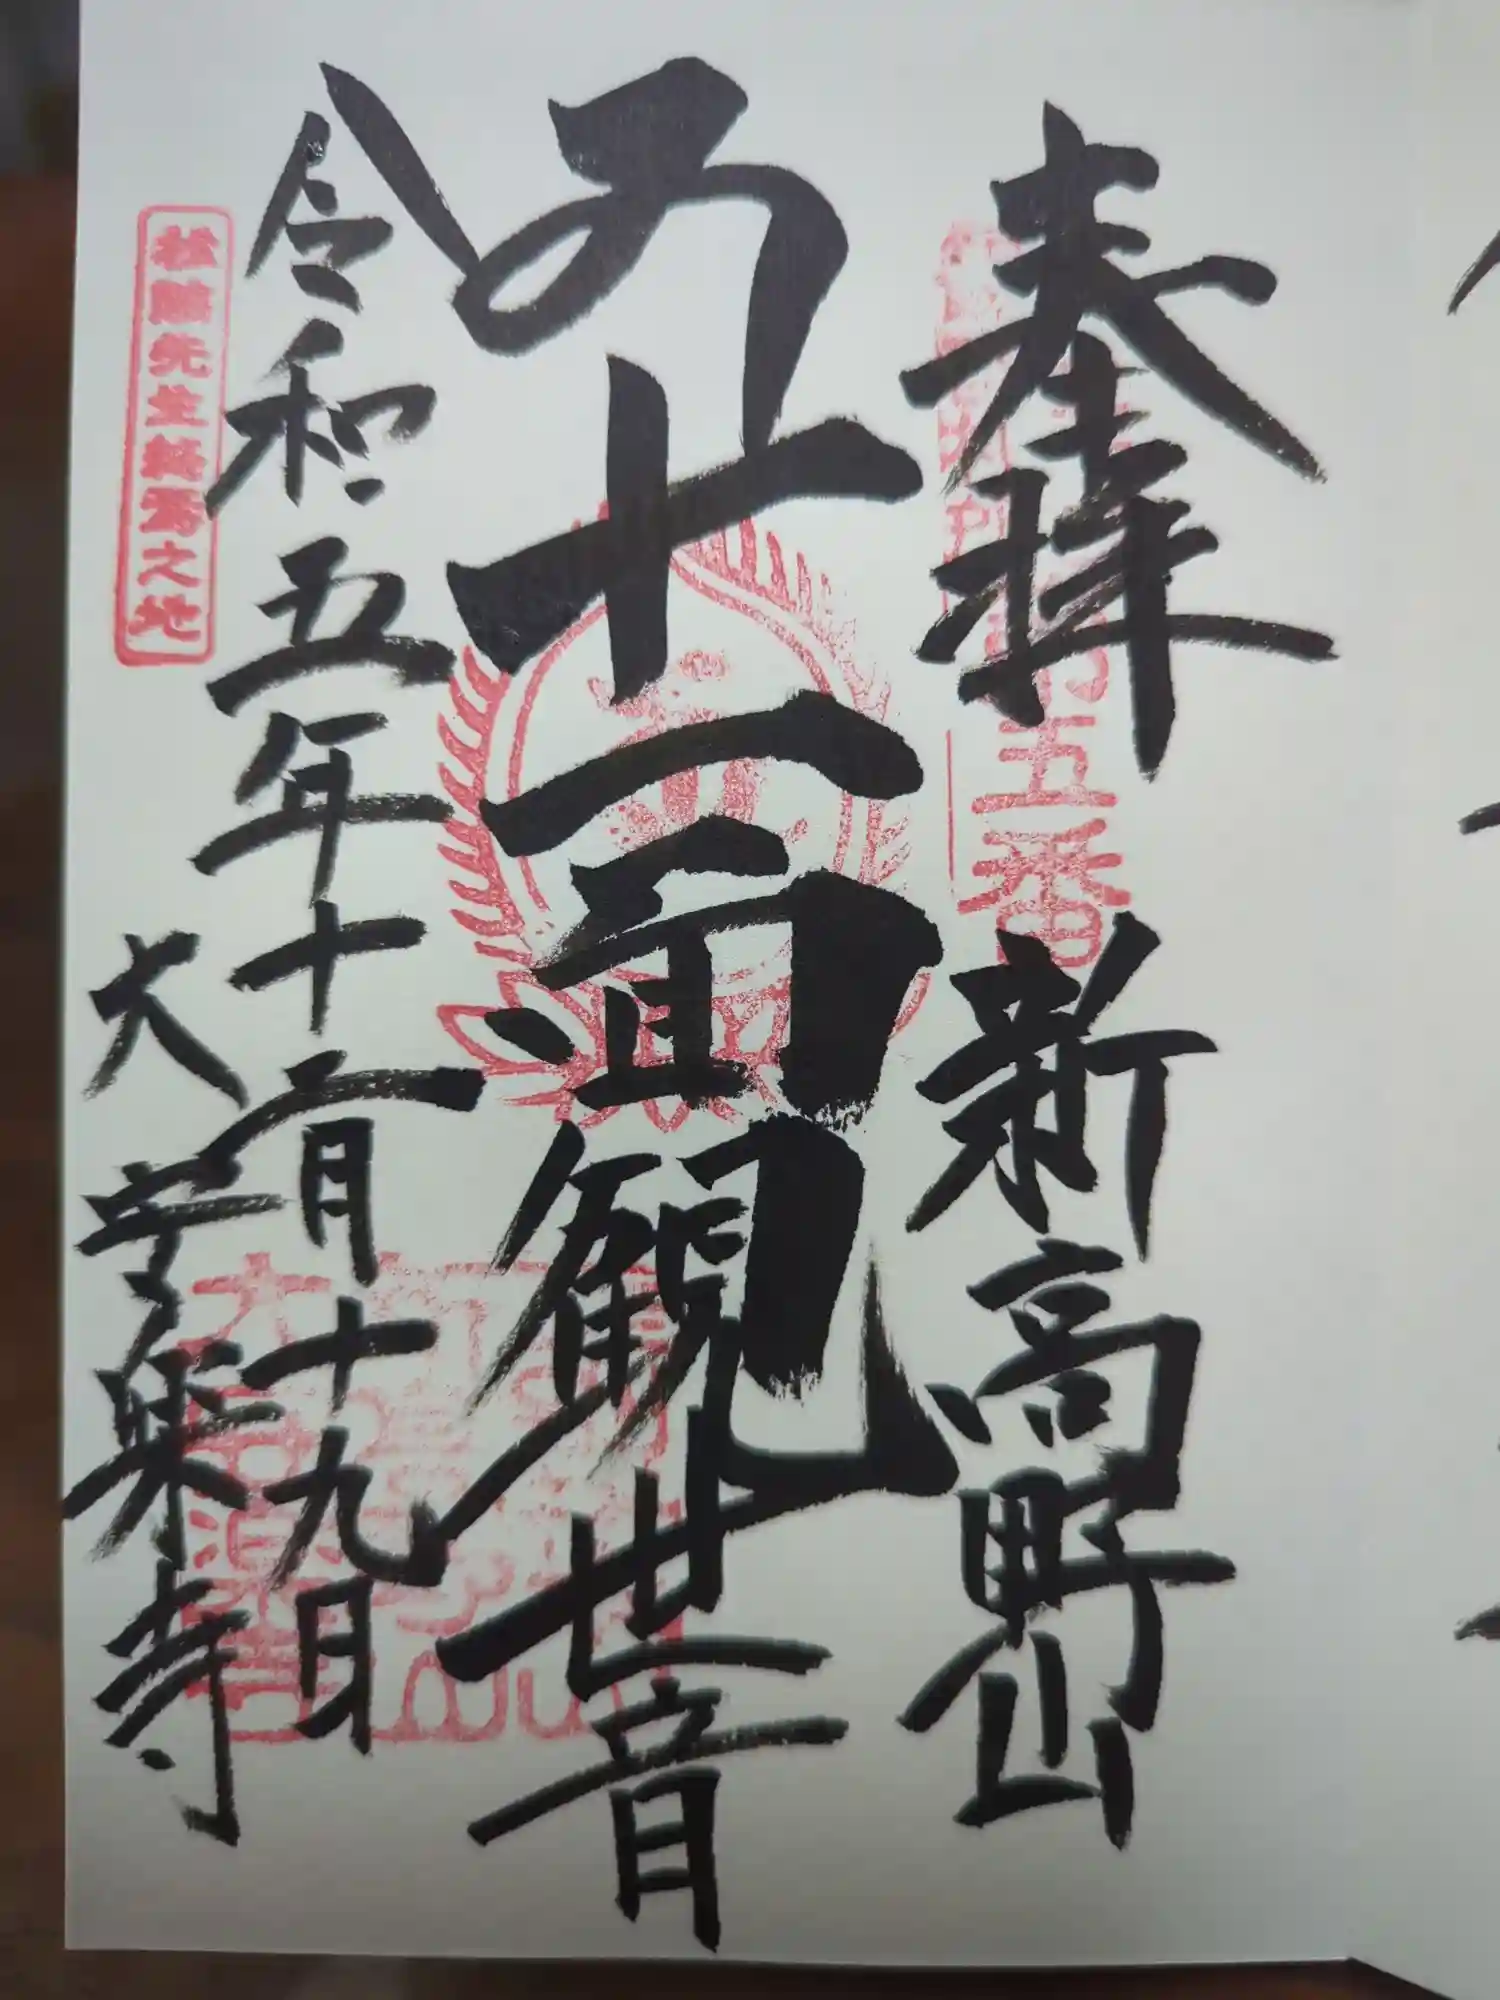 奉拝 新高野山
五番
十一面観世音
令和五年十二月十九日
大安楽寺
松陰先生終焉之地